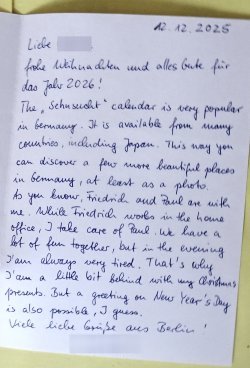 12.12.2025
Liebe
frohe Weihnachten und alles Gute für
das Jahr 2026!
The „Sehnsucht" calendar is very popular
in Germany. It is available from many
countries, including Japan. This way you
can discover a few more beautiful places
in Germany, at least as a photo.
As you know, Friedrich and Paul are with
me. While Friedrich works in the home
office, I take care of Paul. We have a
lot of fun together, but in the evening
I'am always very tired. That's why
I'am a little bit behind with my Christmas
presents. But a greeting on New Year's Day
is also possible, I guess.
Viele liebe Grüße aus Berlin!